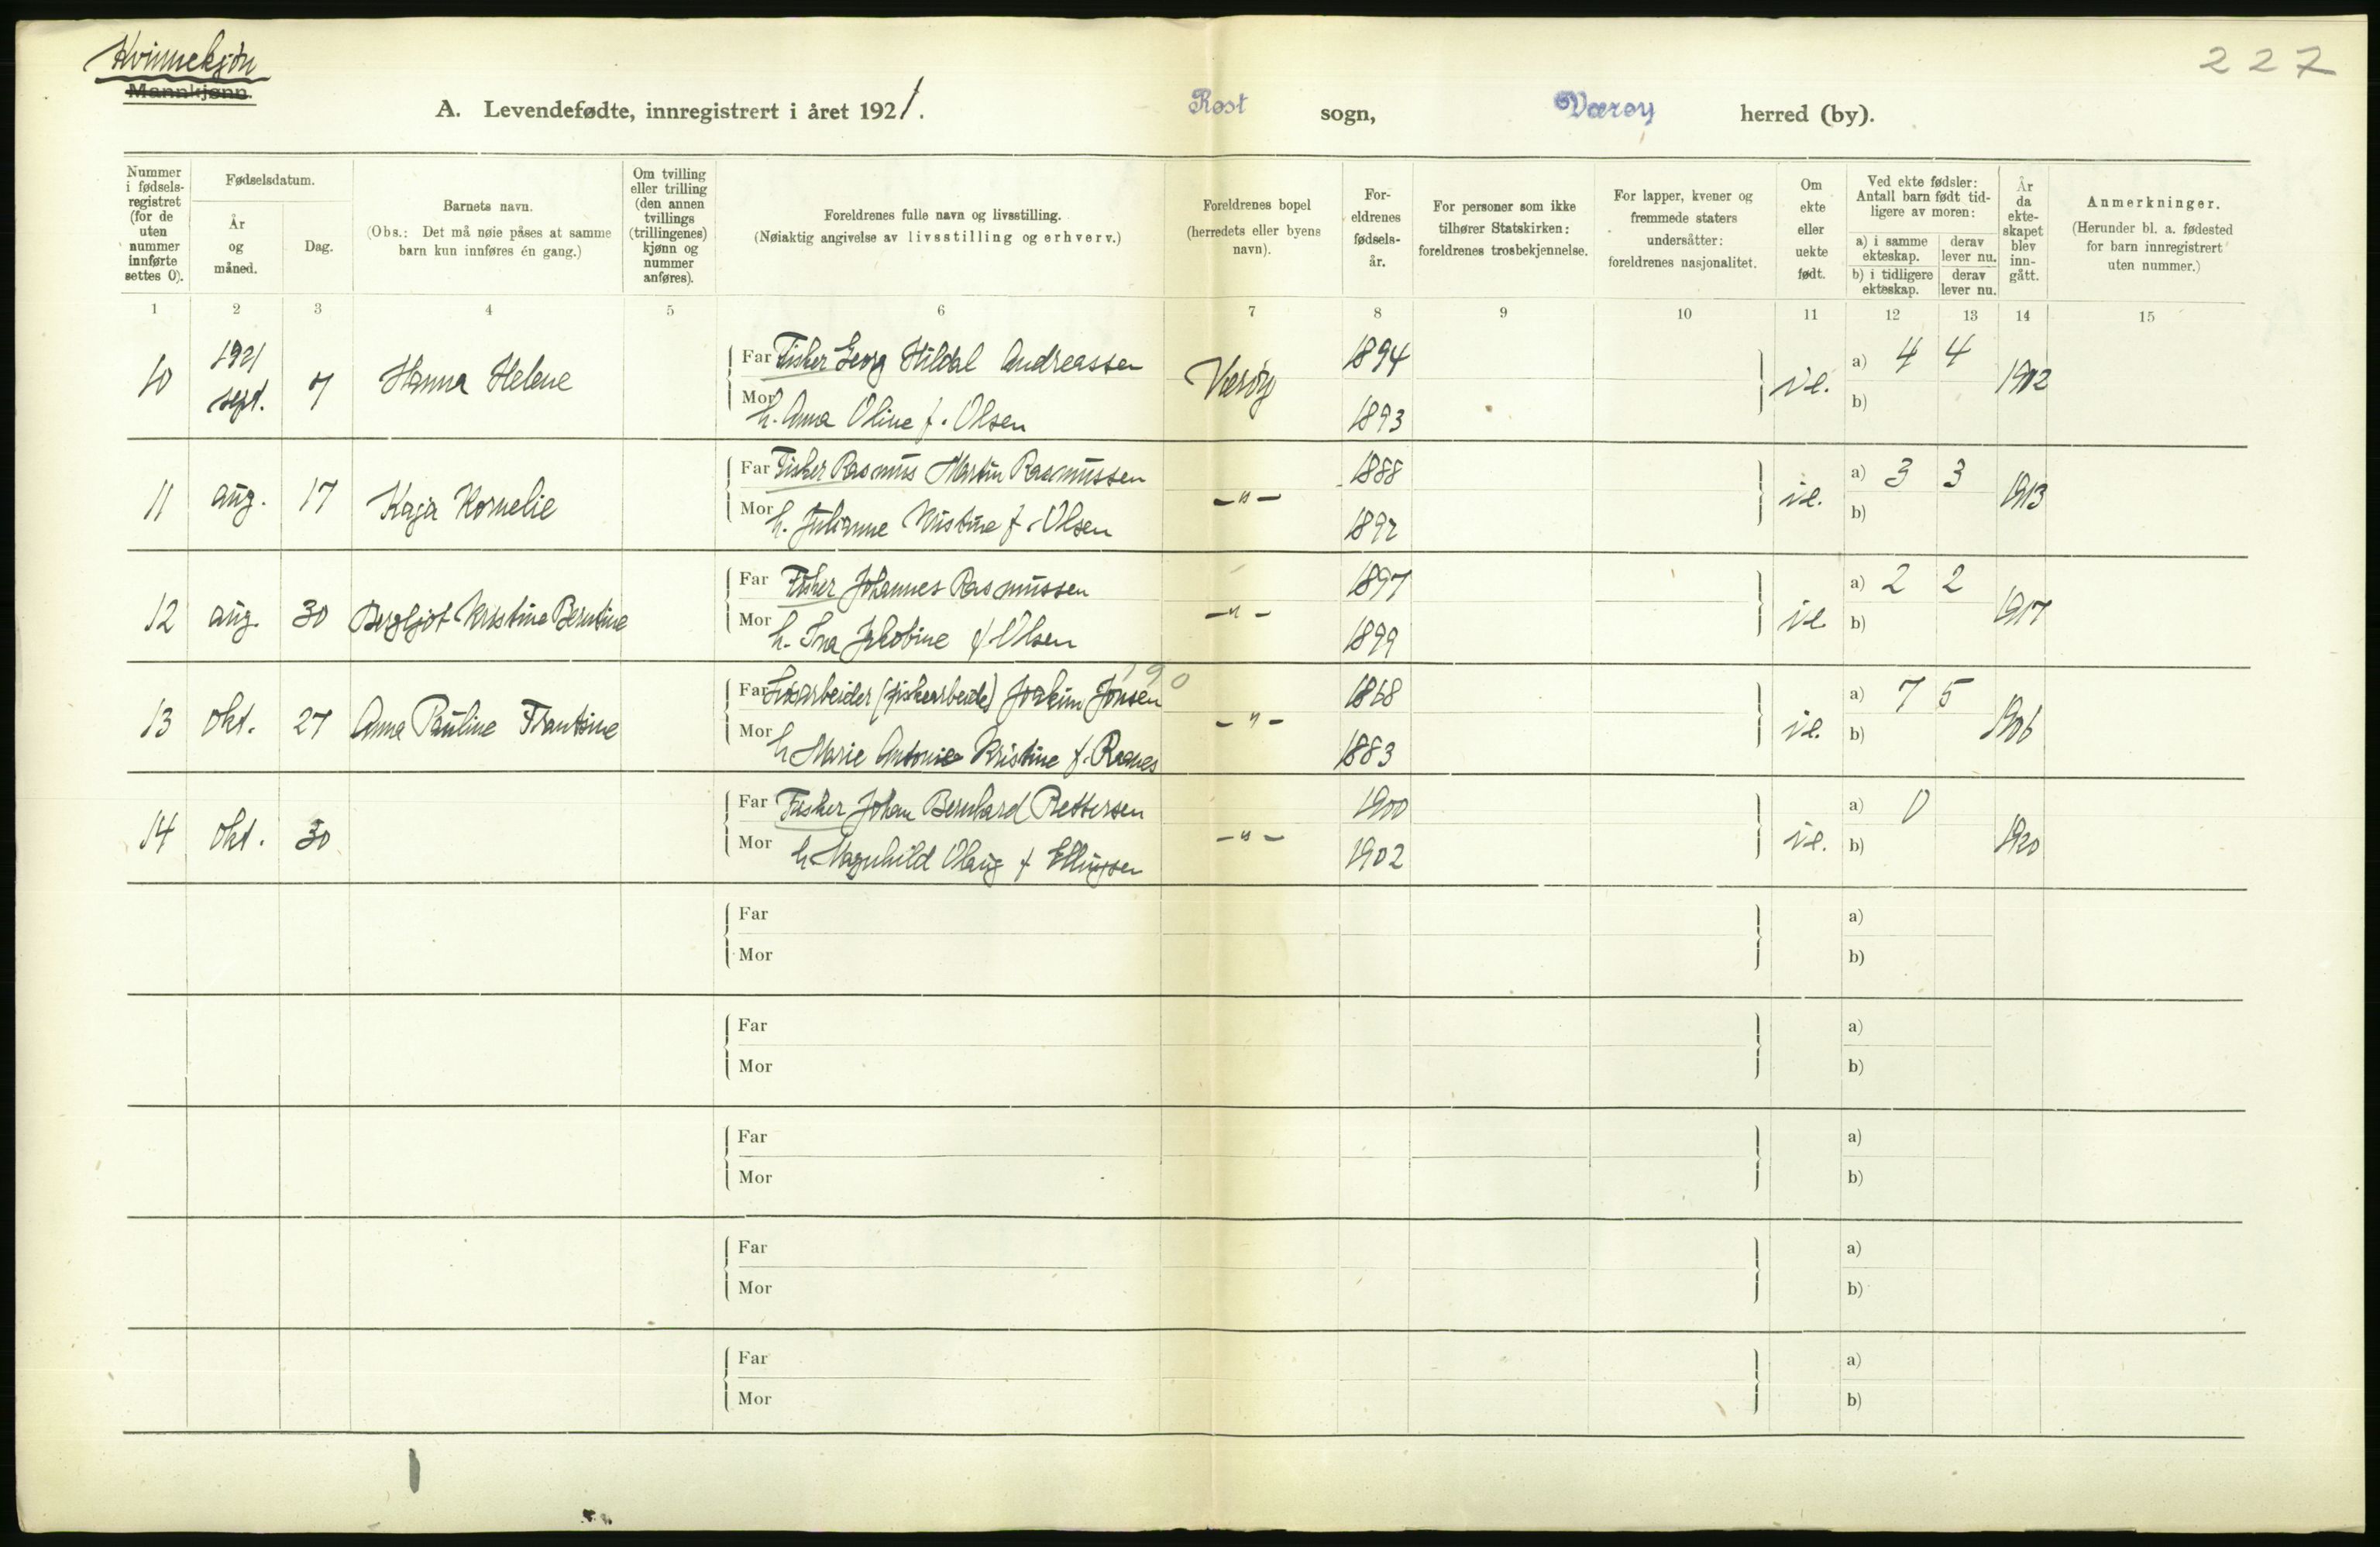 Kvinnekjøn
Mannkjønn.
227
A. Levendefødte, innregistrert i året 1921.
Røst sogn, Værøy herred (by).
Nummer i fødsels-registret (for de uten nummer innførte settes 0).
Fødselsdatum.
År og måned.
Dag.
Barnets navn.
(Obs.: Det må nøie påses at samme barn kun innføres én gang.)
Om tvilling eller trilling (den annen tvillings (trillingenes) kjønn og nummer anføres).
Foreldrenes fulle navn og livsstilling.
(Nøiaktig angivelse av livsstilling og erhverv.)
Foreldrenes bopel (herredets eller byens navn).
For-eldrenes fødsels-år.
For personer som ikke tilhører Statskirken: foreldrenes trosbekjennelse.
For lapper, kvener og fremmede staters undersåtter: foreldrenes nasjonalitet.
Om ekte eller uekte født.
Ved ekte fødsler: Antall barn født tid-ligere av moren:
a) i samme ekteskap.
derav lever nu.
b) i tidligere ekteskap.
derav lever nu.
År da ekte-skapet blev inn-gått.
Anmerkninger.
(Herunder bl. a. fødested for barn innregistrert uten nummer.)
1 2 3 4 5 6 7 8 9 10 11 12 13 14 15
10 1921 sept. 7 Hanna Helene
Far Fisker Georg Hildal Andreassen Værøy 1894 a) 4 4
Mor h. Anna Oline f. Olsen 1893 b) 1912
11 aug. 17 Kaja Kornelie
Far Fisker Rasmus Martin Rasmussen -"- 1888 a) 3 3
Mor h. Julianne Kristine f. Olsen 1892 b) 1913
12 aug. 30 Bergljot Kristine Berntine
Far Fisker Johannes Rasmussen -"- 1897 a) 2 2
Mor h. Ina Jakobine f. Olsen 1899 b) 1917
13 okt. 27 Anna Pauline Frantsine
Far Løsarbeider (fiskearbeide) Joakim Jonsen -"- 1868 a) 7 5
Mor h. Marie Antonie Kristine f. 1883 b) 1906
14 okt. 30
Far Fisker Johan Bernhard Pettersen -"- 1900 a) 0
Mor h. Magnhild Olaug f. Ellingsen 1902 b) 1920
Far a)
Mor b)
Far a)
Mor b)
Far a)
Mor b)
Far a)
Mor b)
Far a)
Mor b)